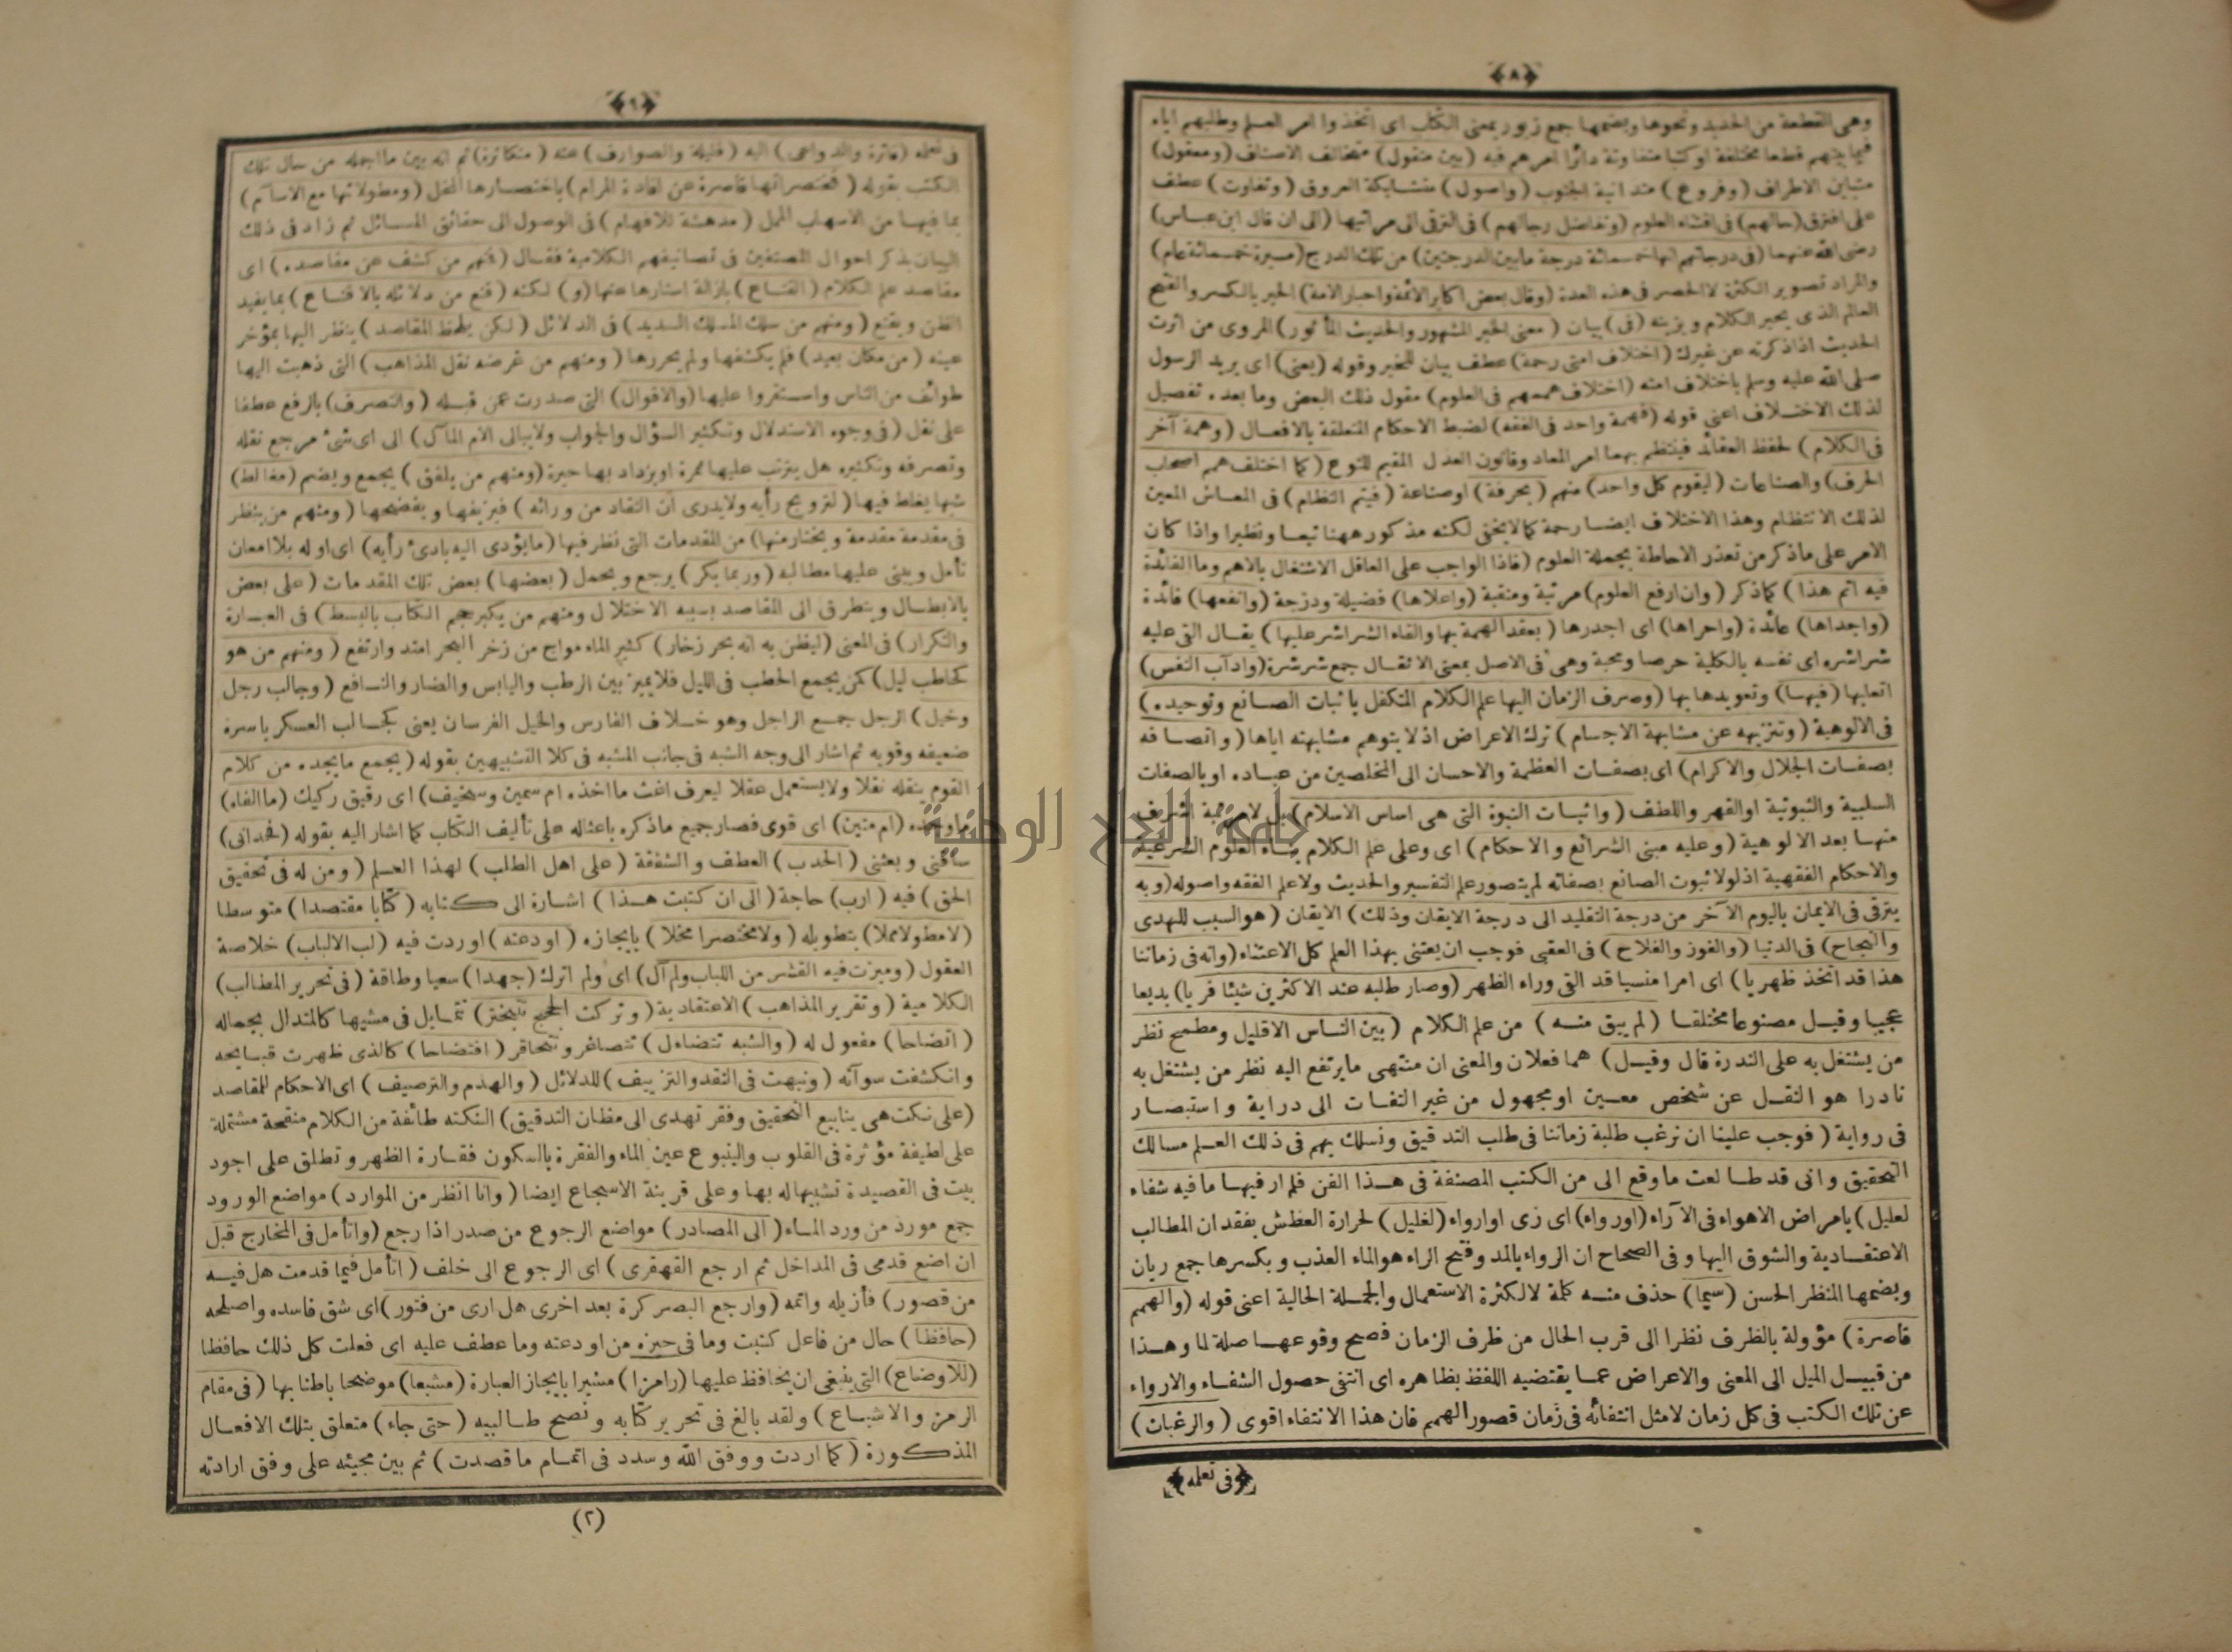 ﴿٨﴾
وهى القطعة من الحديد ونحوها وبضمها جمع زبور بمعنى الكتاب اى اتخذوا امر العلم وطلبهم اياه
فيما بينهم قطعا مختلفة اوكتبا متفاوتة دائرا امرهم فيه (بين منقول) متخالف الاصناف (ومعقول)
متباين الاطراف (وفروع) متدانية الجنوب (واصول) متشابكة العروق (وتفاوت) عطف
على افترق (حالهم) فى اقتناء العلوم (وتفاضل رجالهم) فى الترقى الى مراتبها (الى ان قال ابن عباس)
رضى الله عنهما (فى درجاتهم انها خمسمائة درجة مابين الدرجتين) من تلك الدرج (مسيرة خمسمائة عام)
والمراد تصوير الكثرة لا الحصر فى هذه العدة (وقال بعض اكابر الائمة واحبار الامة) الحبر بالكسر والفتح
العالم الذى يحبر الكلام ويزينه (فى) بيان (معنى الخبر المشهور والحديث المأثور) المروى من اثرت
الحديث اذا ذكرته عن غيرك (اختلاف امتى رحمة) عطف بيان للخبر وقوله (يعنى) اى يريد الرسول
صلى الله عليه وسلم باختلاف امته (اختلاف هممهم فى العلوم) مقول ذلك البعض وما بعده تفصيل
لذلك الاختلاف اعنى قوله (فهمة واحد فى الفقه) لضبط الاحكام المتعلقة بالافعال (وهمة آخر
فى الكلام) لحفظ العقائد فينتظم بهما امر المعاد وقانون العدل المقيم للنوع (كما اختلف همم اصحاب
الحرف) والصناعات (ليقوم كل واحد) منهم (بحرفة) اوصناعة (فيتم النظام) فى المعاش المعين
لذلك الانتظام وهذا الاختلاف ايضا رحمة كما لا يخفى لكنه مذكور ههنا تبعا ونظيرا واذا كان
الامر على ماذكر من تعذر الاحاطة بجملة العلوم (فاذا الواجب على العاقل الاشتغال بالاهم وما الفائدة
فيه اتم هذا) كما ذكر (وان ارفع العلوم) مرتبة ومنقبة (واعلاها) فضيلة ودرجة (وانفعها) فائدة
(واجداها) عائدة (واحراها) اى اجدرها (بعقد الهمة بها والقاء الشراشر عليها) يقال القى عليه
شراشره اى نفسه بالكلية حرصا ومحبة وهى فى الاصل بمعنى الاثقال جمع شرشرة (وادآب النفس)
اتعابها (فيها) وتعويدها بها (وصرف الزمان اليها علم الكلام المتكفل باثبات الصانع وتوحيده)
فى الالوهية (وتنزيهه عن مشابهة الاجسام) ترك الاعراض اذ لا يتوهم مشابهته اياها (واتصافه
بصفات الجلال والاكرام) اى بصفات العظمة والاحسان الى المخلصين من عباده اوبالصفات
السلبية والثبوتية اوالقهر واللطف (واثبات النبوة التى هى اساس الاسلام) بل لا مرتبة اشرف
منها بعد الالوهية (وعليه مبنى الشرائع والاحكام) اى وعلى علم الكلام بناء العلوم الشرعية
والاحكام الفقهية اذ لولا ثبوت الصانع بصفاته لم يتصور علم التفسير والحديث ولا علم الفقه واصوله (وبه
يترقى فى الايمان باليوم الآخر من درجة التقليد الى درجة الايقان وذلك) الايقان (هو السبب للهدى
والنجاح) فى الدنيا (والفوز والفلاح) فى العقبى فوجب ان يعتنى بهذا العلم كل الاعتناء (وانه فى زماننا
هذا قد اتخذ ظهريا) اى امرا منسيا قد القى وراء الظهر (وصار طلبه عند الاكثرين شيئا فريا) بديعا
عجيبا وقيل مصنوعا مختلقا (لم يبق منه) من علم الكلام (بين الناس الاقليل ومطمح نظر
من يشتغل به على الندرة قال وقيل) هما فعلان والمعنى ان منتهى مايرتفع اليه نظر من يشتغل به
نادرا هو النقل عن شخص معين اومجهول من غير التفات الى دراية واستبصار
فى رواية (فوجب علينا ان نرغب طلبة زماننا فى طلب التدقيق ونسلك بهم فى ذلك العلم مسالك
التحقيق وانى قد طالعت ماوقع الى من الكتب المصنفة فى هذا الفن فلم ار فيها ما فيه شفاء
لعليل) بامراض الاهواء فى الآراء (اورواء) اى رى اوارواء (لغليل) لحرارة العطش بفقدان المطالب
الاعتقادية والشوق اليها وفى الصحاح ان الرواء بالمد وفتح الراء هوالماء العذب وبكسرها جمع ريان
وبضمها المنظر الحسن (سيما) حذف منه كلمة لا لكثرة الاستعمال والجملة الحالية اعنى قوله (والهمم
قاصرة) مؤولة بالظرف نظرا الى قرب الحال من ظرف الزمان فصح وقوعها صلة لما وهذا
من قبيل الميل الى المعنى والاعراض عما يقتضيه اللفظ بظاهره اى انتفى حصول الشفاء والارواء
عن تلك الكتب فى كل زمان لا مثل انتفائه فى زمان قصور الهمم فان هذا الانتفاء اقوى (والرغبات)
﴿فى تعلمه﴾
﴿٩﴾
فى تعلمه (فاترة والدواعى) اليه (قليلة والصوارف) عنه (متكاثرة) ثم انه بين مااجمله من حال تلك
الكتب بقوله (فمختصراتها قاصرة عن افادة المرام) باختصارها المخل (ومطولاتها مع الاسآم)
بما فيها من الاسهاب الممل (مدهشة للافهام) فى الوصول الى حقائق المسائل ثم زاد فى ذلك
البيان بذكر احوال المصنفين فى تصانيفهم الكلامية فقال (فمنهم من كشف عن مقاصده) اى
مقاصد علم الكلام (القناع) بازالة استارها عنها (و) لكنه (قنع من دلائله بالاقناع) بما يفيد
الظن ويقنع (ومنهم من سلك المسلك السديد) فى الدلائل (لكن يلحظ المقاصد) ينظر اليها بمؤخر
عينه (من مكان بعيد) فلم يكشفها ولم يحررها (ومنهم من غرضه نقل المذاهب) التى ذهبت اليها
طوائف من الناس واستقروا عليها (والاقوال) التى صدرت عمن قبله (والتصرف) بالرفع عطفا
على نقل (فى وجوه الاستدلال وتكثير السؤال والجواب ولايبالى الام المآل) الى اى شئ مرجع نقله
وتصرفه وتكثيره هل يترتب عليها ثمرة اويزداد بها حيرة (ومنهم من يلفق) يجمع ويضم (مغالط)
شبها يغلط فيها (لترويج رأيه ولايدرى ان النقاد من ورائه) فيزيفها ويفضحها (ومنهم من ينظر
فى مقدمة مقدمة ويختار منها) من المقدمات التى نظر فيها (مايؤدى اليه بادئ رأيه) اى اوله بلا امعان
تأمل ويبنى عليها مطالبه (وربما يكر) يرجع ويحمل (بعضها) بعض تلك المقدمات (على بعض
بالابطال ويتطرق الى المقاصد بسببه الاختلال ومنهم من يكبر حجم الكتاب بالبسط) فى العبارة
والتكرار) فى المعنى (ليظن به انه بحر زخار) كثير الماء مواج من زخر البحر امتد وارتفع (ومنهم من هو
كحاطب ليل) كمن يجمع الحطب فى الليل فلا يميز بين الرطب واليابس والضار والنافع (وجالب رجل
وخيل) الرجل جمع الراجل وهو خلاف الفارس والخيل الفرسان يعنى كجالب العسكر باسره
ضعيفه وقويه ثم اشار الى وجه الشبه فى جانب المشبه فى كلا التشبيهين بقوله (يجمع مايجده من كلام
القوم ينقله نقلا ولايستعمل عقلا ليعرف اغث مااخذه ام سمين وسخيف) اى رقيق ركيك (ماالفاه)
ماوجده (ام متين) اى قوى فصار جميع ماذكره باعثاله على تأليف الكتاب كما اشار اليه بقوله (فحدانى)
ساقنى وبعثنى (الحدب) العطف والشفقة (على اهل الطلب) لهذا العلم (ومن له فى تحقيق
الحق) فيه (ارب) حاجة (الى ان كتبت هذا) اشارة الى كتابه (كتابا مقتصدا) متوسطا
(لا مطولا مملا) بتطويله (ولا مختصرا مخلا) بايجازه (اودعته) اوردت فيه (لب الالباب) خلاصة
العقول (وميزت فيه القشر من اللباب ولم آل) اى ولم اترك (جهدا) سعيا وطاقة (فى تحرير المطالب)
الكلامية (وتقرير المذاهب) الاعتقادية (وتركت الحجج تتبختر) تتمايل فى مشيها كالمتدال بجماله
(اتضاحا) مفعول له (والشبه تتضاءل) تتصاغر وتتحاقر (افتضاحا) كالذى ظهرت قبايحه
وانكشفت سوآته (ونبهت فى النقد والتزييف) للدلائل (والهدم والترصيف) اى الاحكام للمقاصد
(على نكت هى ينابيع التحقيق وفقر تهدى الى مظان التدقيق) النكته طائفة من الكلام منقحة مشتملة
على لطيفة مؤثرة فى القلوب والينبوع عين الماء والفقرة بالسكون فقارة الظهر وتطلق على اجود
بيت فى القصيدة تشبيها له بها وعلى قرينة الاسجاع ايضا (وانا انظر من الموارد) مواضع الورود
جمع مورد من ورد الماء (الى المصادر) مواضع الرجوع من صدر اذا رجع (واتأمل فى المخارج قبل
ان اضع قدمى فى المداخل ثم ارجع القهقرى) اى الرجوع الى خلف (اتأمل فيما قدمت هل فيه
من قصور) فأزيله واتمه (وارجع البصر كرة بعد اخرى هل ارى من فتور) اى شق فاسده واصلحه
(حافظا) حال من فاعل كتبت وما فى حيزه من اودعته وما عطف عليه اى فعلت كل ذلك حافظا
(للاوضاع) التى ينبغى ان يحافظ عليها (رامزا) مشيرا بايجاز العبارة (مشبعا) موضحا باطنابها (فى مقام
الرمز والاشباع) ولقد بالغ فى تحرير كتابه ونصح طالبيه (حتى جاء) متعلق بتلك الافعال
المذكورة (كما اردت ووفق الله وسدد فى اتمام ما قصدت) ثم بين مجيئه على وفق ارادته
(٢)
جامعة النجاح الوطنية